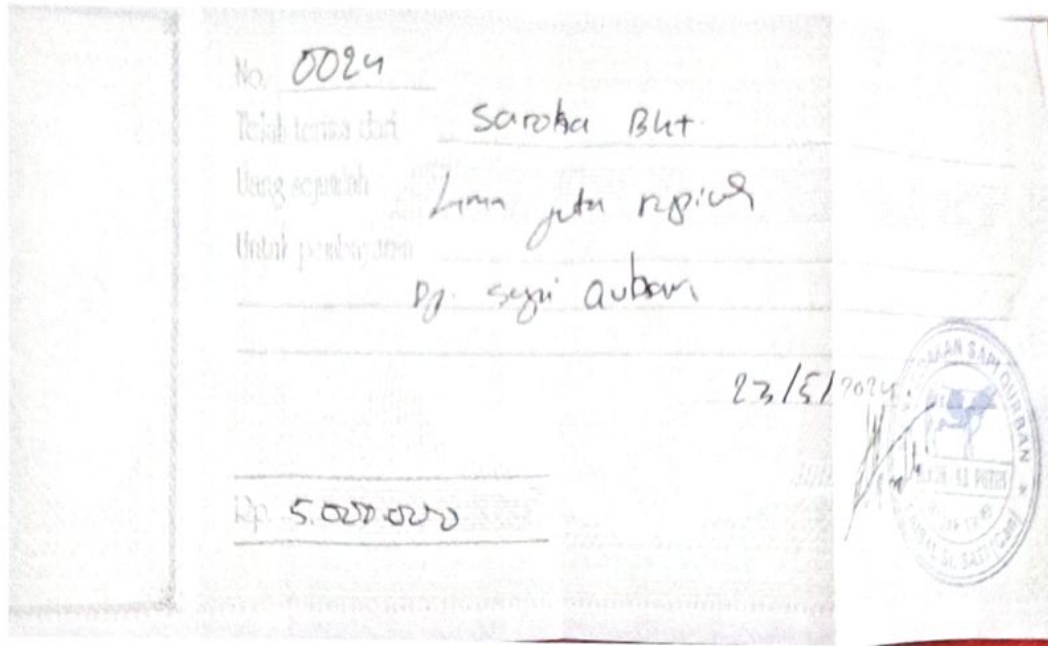 No. 0024
Telah terima dari Saroha Bkt.
Uang sejumlah Lima juta rupiah
Untuk pembayaran
Dp. sapi qurban
23/5/2024.
Rp. 5.000.000
SAPI QURBAN